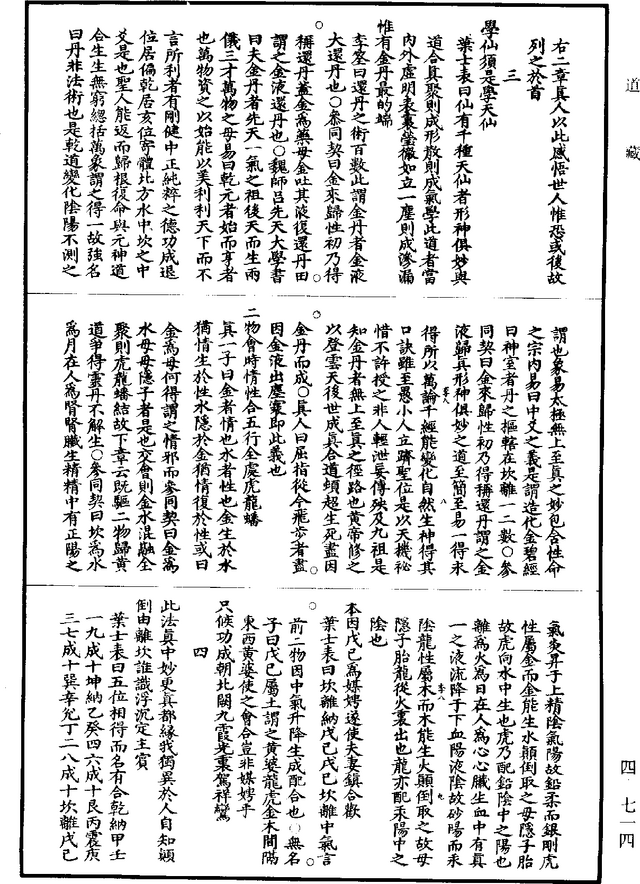 道藏
右二章真人以此感悟世人惟恐或後故
列之於首
三
學仙須是學天仙
葉士表曰仙有千種天仙者形神俱妙與
道合真聚則成形散則成氣學此道者當
內外虛明表裏瑩徹如立一塵則成滲漏
惟有金丹最的端
李筌曰還丹之術百數此謂金丹者金液
大還丹也○參同契曰金來歸性初乃得
稱還丹蓋金為藥母金吐其液復還丹田
謂之金液還丹也○魏師呂先天大學書
曰夫金丹者先天一氣之祖後天而生兩
儀三才萬物之母易曰乾元者始而亨者
也萬物資之以始能以美利利天下而不
言所利者有剛健中正純粹之德功成退
位居偏乾居亥位寄體北方水中坎之中
爻是也聖人能返而歸根復命與元神道
合生生無窮總括萬象謂之得一故強名
曰丹非法術也是乾道變化陰陽不測之
謂也象易太極無上至真之妙包含性命
之宗內易曰中爻之義是謂造化金碧經
曰神室者丹之樞轄在坎離一二數○參
同契曰金來歸性初乃得稱還丹謂之金
液歸真形神俱妙之道至簡至易一得永
得所以萬論千經能變化自然生神得其
口訣雖至愚小人立躋聖位是以天機祕
惜不許授之非人輕泄妄傳殃及九祖是
知金丹者無上至真之徑路也黃帝修之
以登雲天後世成真合道頓超生死盡因
金丹而成○真人曰屈指從今飛步者盡
因金液出塵寰即此義也
二物會時情性合五行全處虎龍蟠
真一子曰金者情也水者性也金生於水
猶情生於性水隱於金猶情復於性或曰
金為母何得謂之情邪而參同契曰金為
水母母隱子者是也交會則金水混融全
聚則虎龍蟠結故下章云既驅二物歸黃
道爭得靈丹不解生○參同契曰坎為水
為月在人為腎腎臟生精精中有正陽之
氣炎昇于上精陰氣陽故鉛柔而銀剛虎
性屬金而金能生水顛倒取之母隱子胎
故虎向水中生也虎乃配鉛陰中之陽也
離為火為日在人為心心臟生血中有真
一之液流降于下血陽液陰故砂陽而汞
陰龍性屬木而木能生火顛倒取之故母
隱子胎龍從火裏出也龍亦配汞陽中之
陰也
本因戊己為媒娉遂使夫妻鎮合歡
葉士表曰坎離納戊己戊己坎離中氣言
前二物因中氣升降生成配合也○無名
子曰戊己屬土謂之黃婆龍虎金木間隔
東西黃婆使之會合豈非媒娉乎
只候功成朝北闕九霞光裏駕祥鸞
四
此法真中妙更真都緣我獨異於人自知顛
倒由離坎誰識浮沉定主賓
葉士表曰五位相得而名有合乾納甲壬
一九成十坤納乙癸四六成十艮丙震庚
三七成十巽辛兌丁二八成十坎離戊己
四·七一四